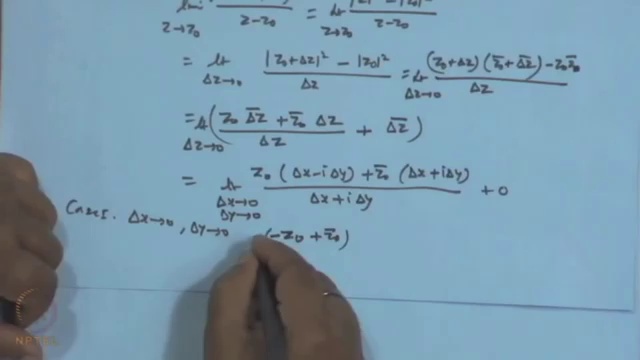 lim z→z₀ z-z₀ = lt z→z₀ z-z₀
= lt Δz→0 |z₀+Δz|² - |z₀|² / Δz = lt Δz→0 (z₀+Δz)(z̄₀+Δz̄) - z₀z̄₀ / Δz
= lt Δz→0 ( z₀ Δz̄ + z̄₀ Δz / Δz + Δz̄ )
= lt Δx→0 Δy→0 z₀ (Δx-iΔy) + z̄₀ (Δx+iΔy) / Δx+iΔy + 0
Case I. Δx→0, Δy→0 (-z₀ + z̄₀)
NPTEL